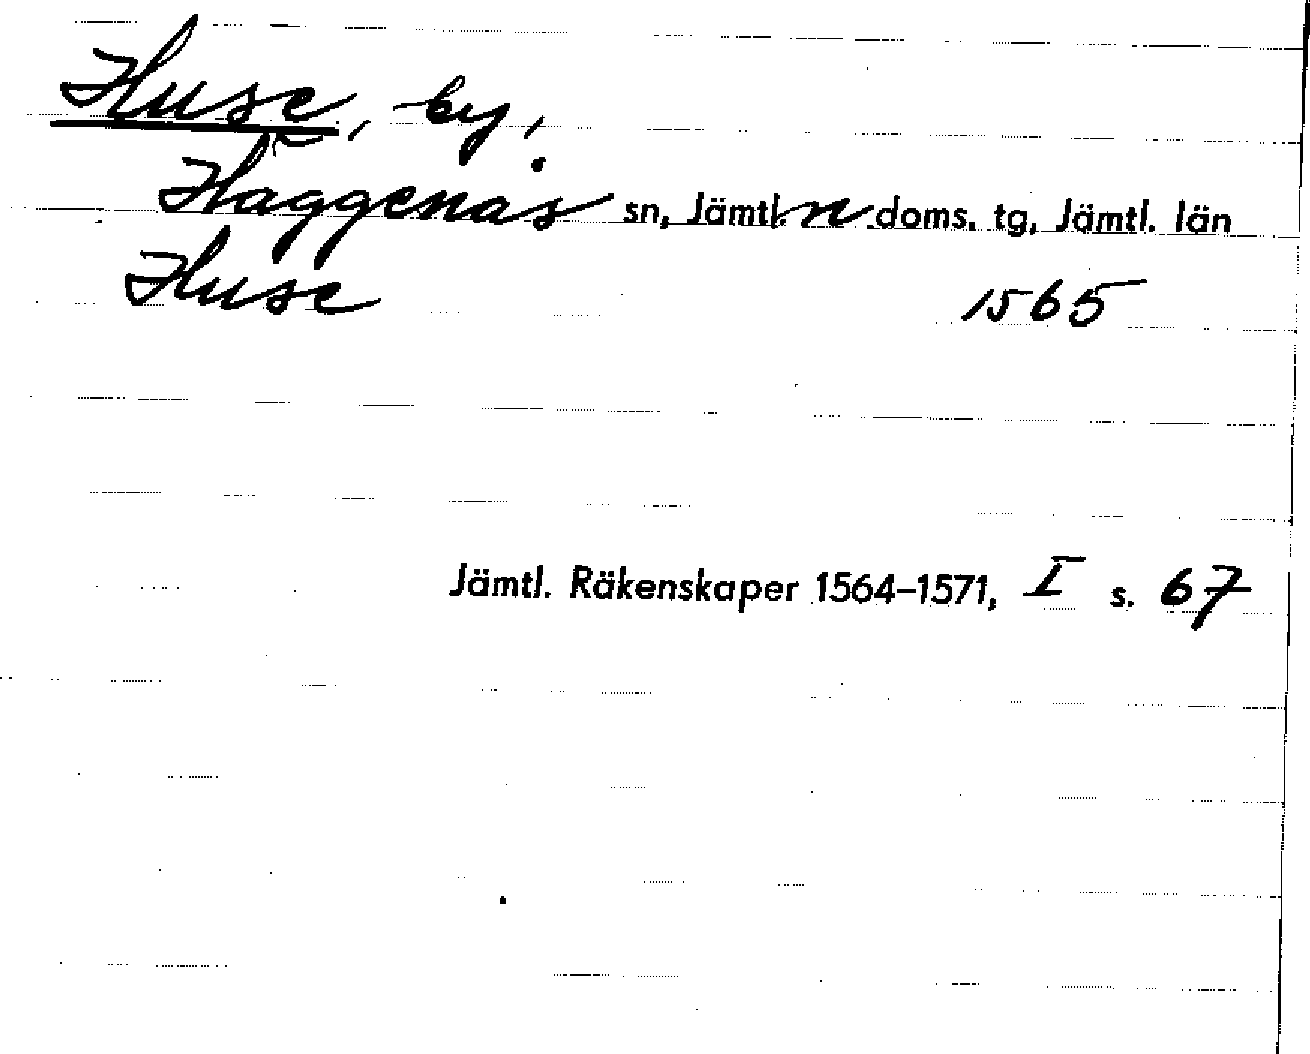 Huse, by,
Häggenås sn, Jämtl. n doms. tg, Jämtl. län
Huse 1565
Jämtl. Räkenskaper 1564-1571, I s. 67